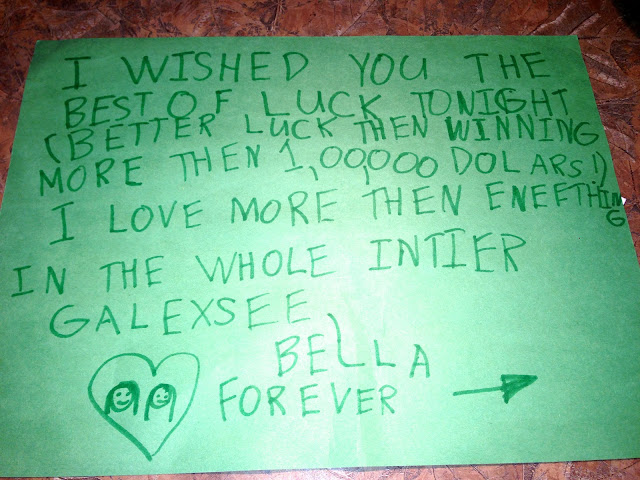 I WISHED YOU THE
BEST OF LUCK TONIGHT
(BETTER LUCK THEN WINNING
MORE THEN 1,00,000 DOLARS!)
I LOVE MORE THEN ENEETHING
IN THE WHOLE INTIER
GALEXSEE,
BELLA
FOREVER